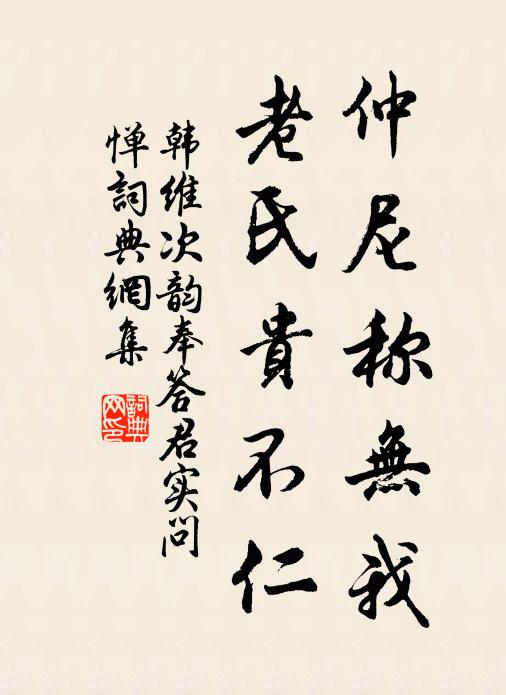 仲尼称無我
老氏貴不仁
韩维次韵奉答君实问
惮詞典網集
詞典
网印